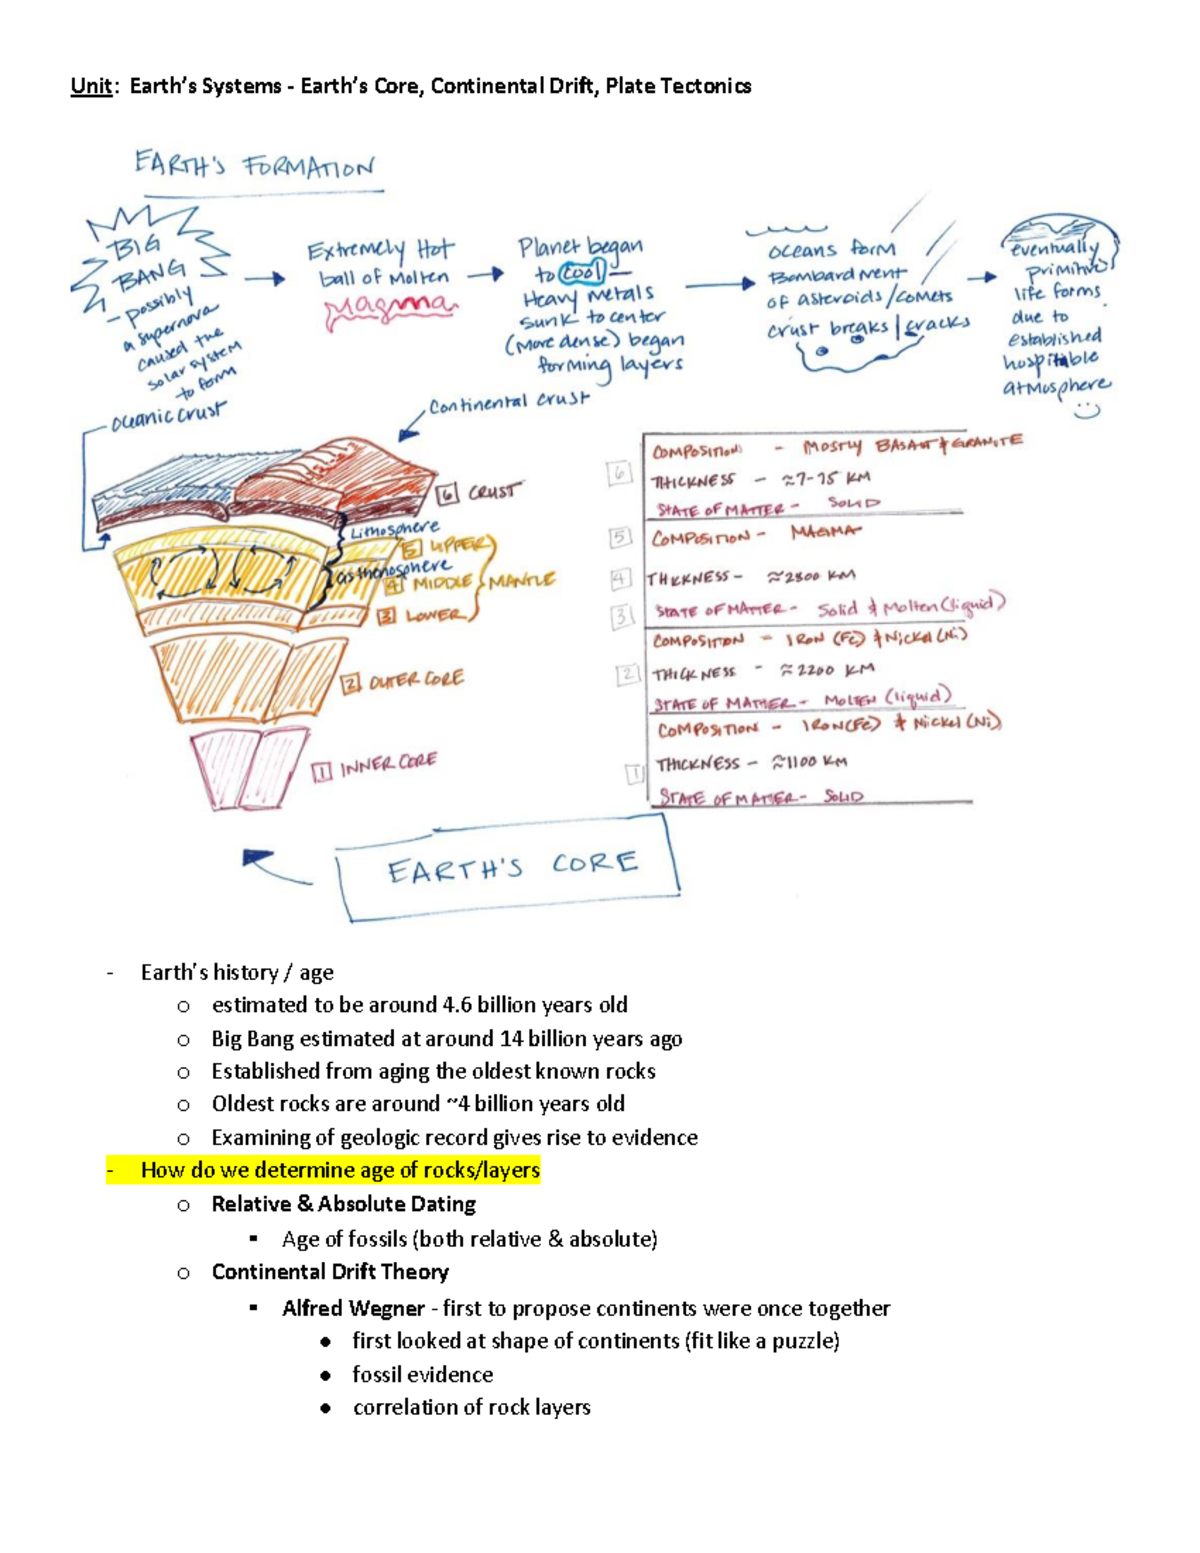 Unit: Earth's Systems - Earth's Core, Continental Drift, Plate Tectonics
EARTH'S FORMATION
BIG
BANG
- possibly
a supernova
caused the
solar system
to form
Extremely Hot
ball of Molten
Magma
Planet began
to cool -
Heavy metals
sunk to center
(More dense) began
forming layers
oceans form
Bombardment
of asteroids/comets
crust breaks/cracks
eventually
primitive
life forms
due to
established
hospitable
atmosphere
oceanic crust
continental crust
6 CRUST
Lithosphere
5 UPPER
asthenosphere
4 MIDDLE MANTLE
3 LOWER
2 OUTER CORE
1 INNER CORE
6
COMPOSITION - MOSTLY BASALT & GRANITE
THICKNESS - ≈7-75 KM
STATE OF MATTER - SOLID
5
COMPOSITION - MAGMA
4
THICKNESS - ≈2800 KM
3
STATE OF MATTER - Solid & Molten (liquid)
COMPOSITION - IRON (Fe) & Nickel (Ni)
2
THICKNESS - ≈2200 KM
STATE OF MATTER - MOLTEN (liquid)
COMPOSITION - IRON (Fe) & Nickel (Ni)
THICKNESS - ≈1100 KM
1
STATE OF MATTER - SOLID
EARTH'S CORE
- Earth's history / age
o estimated to be around 4.6 billion years old
o Big Bang estimated at around 14 billion years ago
o Established from aging the oldest known rocks
o Oldest rocks are around ~4 billion years old
o Examining of geologic record gives rise to evidence
- How do we determine age of rocks/layers
o Relative & Absolute Dating
▪ Age of fossils (both relative & absolute)
o Continental Drift Theory
▪ Alfred Wegner - first to propose continents were once together
● first looked at shape of continents (fit like a puzzle)
● fossil evidence
● correlation of rock layers